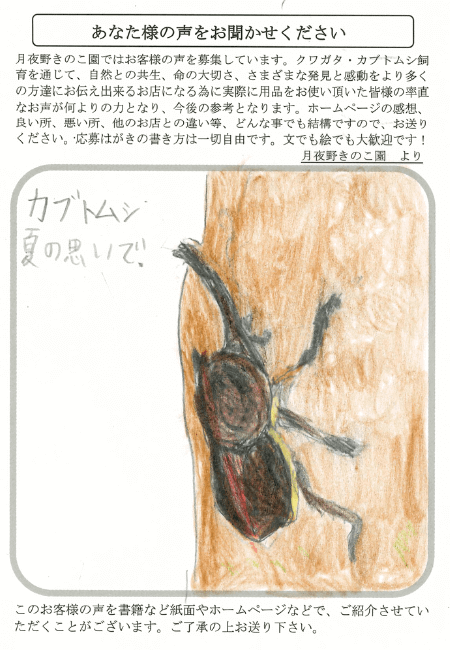 あなた様の声をお聞かせください
月夜野きのこ園ではお客様の声を募集しています。クワガタ・カブトムシ飼
育を通じて、自然との共生、命の大切さ、さまざまな発見と感動をより多く
の方達にお伝え出来るお店になる為に実際に用品をお使い頂いた皆様の率直
なお声が何よりの力となり、今後の参考となります。ホームページの感想、
良い所、悪い所、他のお店との違い等、どんな事でも結構ですので、お送り
ください。応募はがきの書き方は一切自由です。文でも絵でも大歓迎です！
月夜野きのこ園　より
カブトムシ
夏の思いで。
このお客様の声を書籍など紙面やホームページなどで、ご紹介させてい
ただくことがございます。ご了承の上お送り下さい。